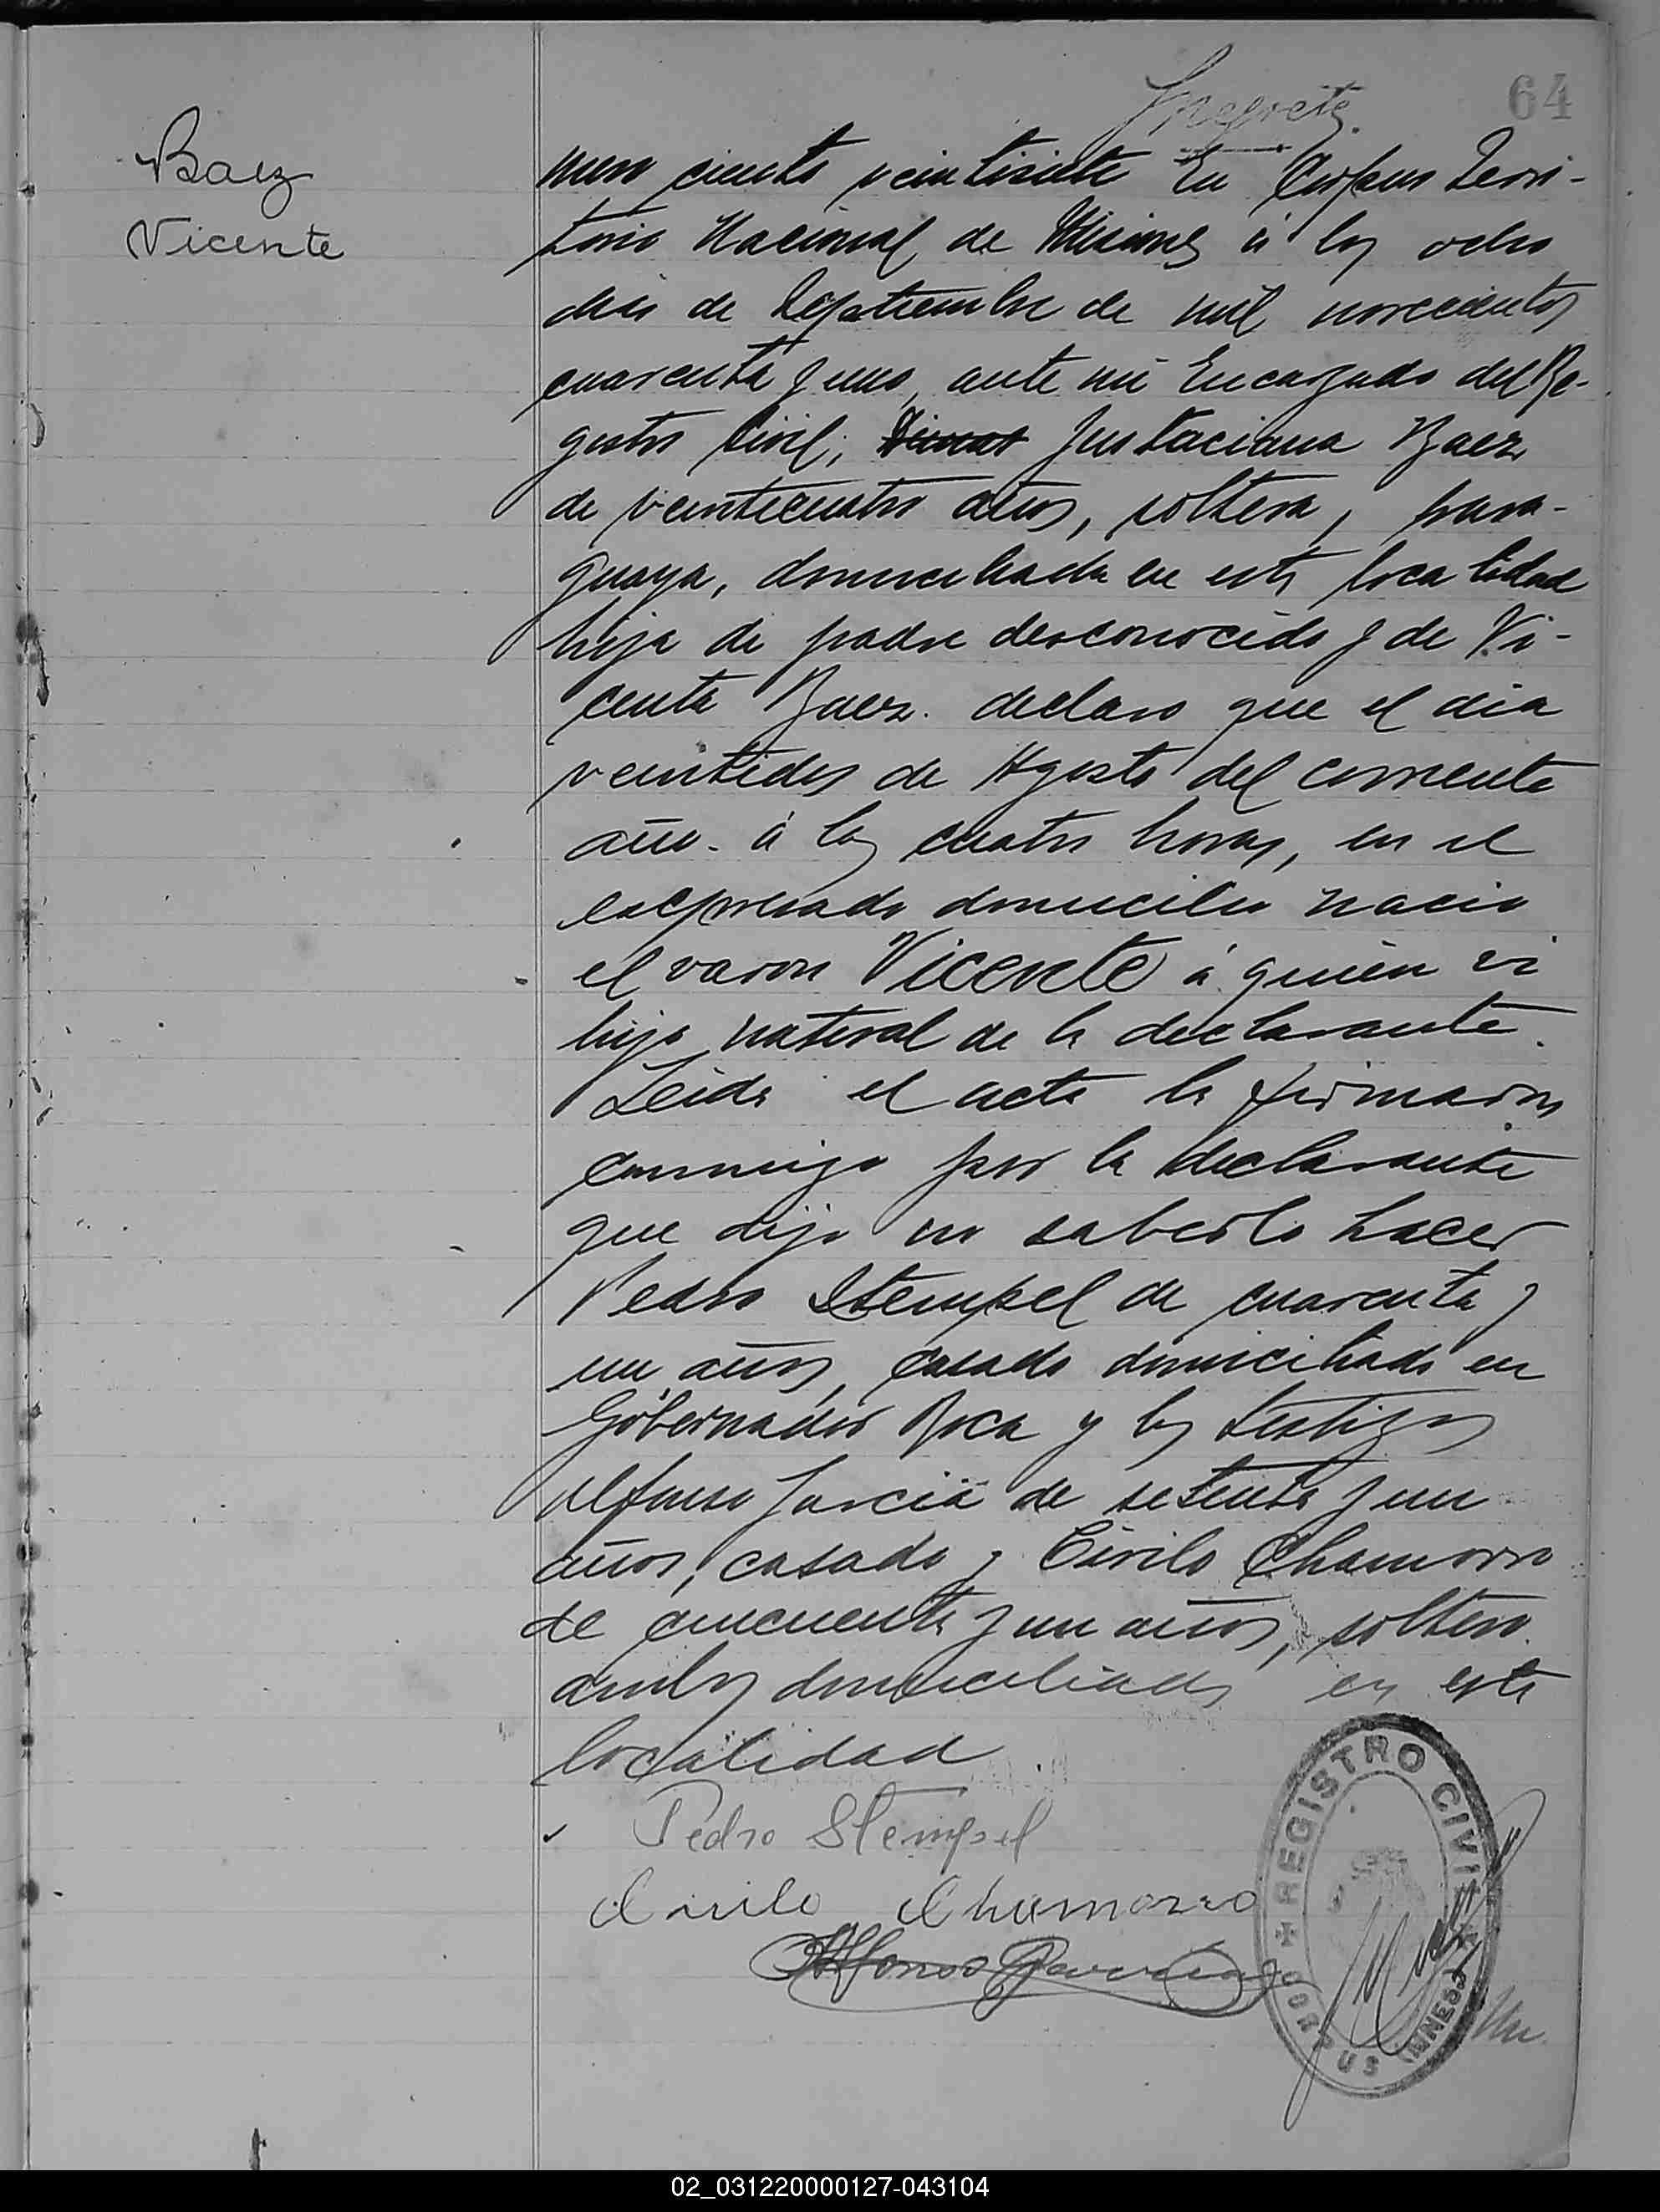 64
Baez
Vicente
mero ciento veintisiete En Corpus Terri-
torio Nacional de Misiones á los ocho
dias de Septiembre de mil novecientos
cuarenta y uno, ante mi Encargado del Re-
gistro Civil; Justaciana Baez
de veinticuatro años, soltera, para-
guaya, domiciliada en esta localidad
hija de padre desconocido y de Vi-
centa Baez. declaro que el dia
veintidos de Agosto del corriente
año. á las cuatro horas, en el
expresado domicilio nacio
el varon Vicente á quien vi
hijo natural de la declarante.
Leida el acta la firmaron
conmigo por la declarante
que dijo no saberlo hacer
Pedro Stempel de cuarenta y
un años, casado domiciliado en
Gobernador Roca y los testigos
Alfonso Garcia de setenta y un
años, casado y Cirilo Chamorro
de cincuenta y un años, soltero.
ambos domiciliados en esta
localidad
Pedro Stempel
Cirilo Chamorro
Alfonso Garcia
REGISTRO CIVIL
CORPUS (MNES)
02_031220000127-043104